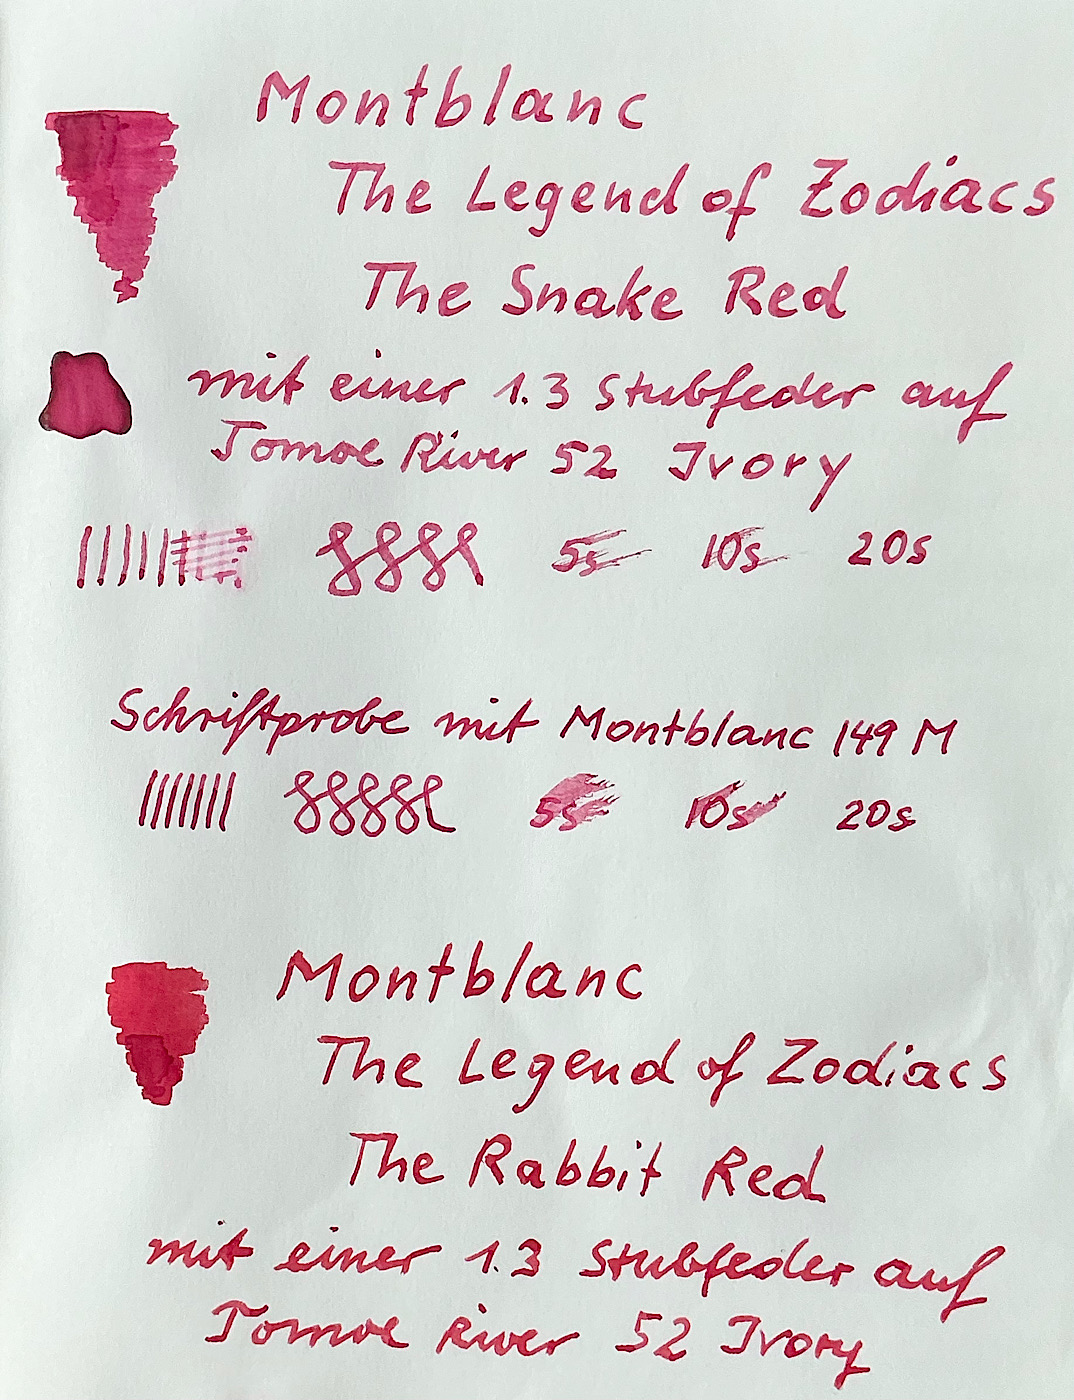 Montblanc
The Legend of Zodiacs
The Snake Red
mit einer 1.3 Stubfeder auf
Tomoe River 52 Ivory
5s 10s 20s
Schriftprobe mit Montblanc 149 M
5s 10s 20s
Montblanc
The Legend of Zodiacs
The Rabbit Red
mit einer 1.3 Stubfeder auf
Tomoe River 52 Ivory